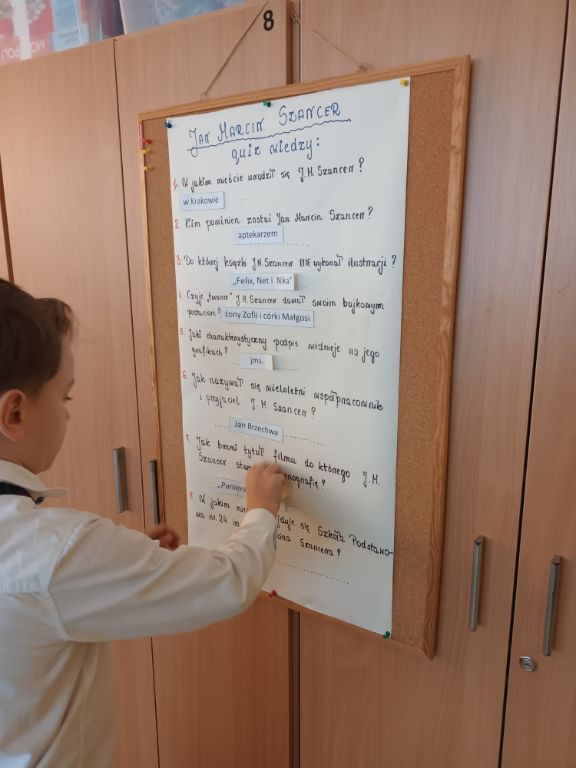 8
JAN MARCIN SZANCER
quiz wiedzy:
1. W jakim mieście urodził się J.M. Szancer?
w Krakowie
2. Kim powinien zostać Jan Marcin Szancer?
aptekarzem
3. Do której książki J.M. Szancer NIE wykonał ilustracji?
„Felix, Net i Nika”
4. Czyje „twarze” J.M. Szancer dawał swoim bajkowym
postaciom? żony Zofii i córki Małgosi
5. Jaki charakterystyczny podpis widnieje na jego
grafikach?
jms.
6. Jak nazywał się wieloletni współpracownik
i przyjaciel J.M. Szancera?
Jan Brzechwa
7. Jak brzmi tytuł filmu do którego J.M.
Szancer
8. W jakim się Szkoła Podstawo-
wa nr.24 im Szancera?